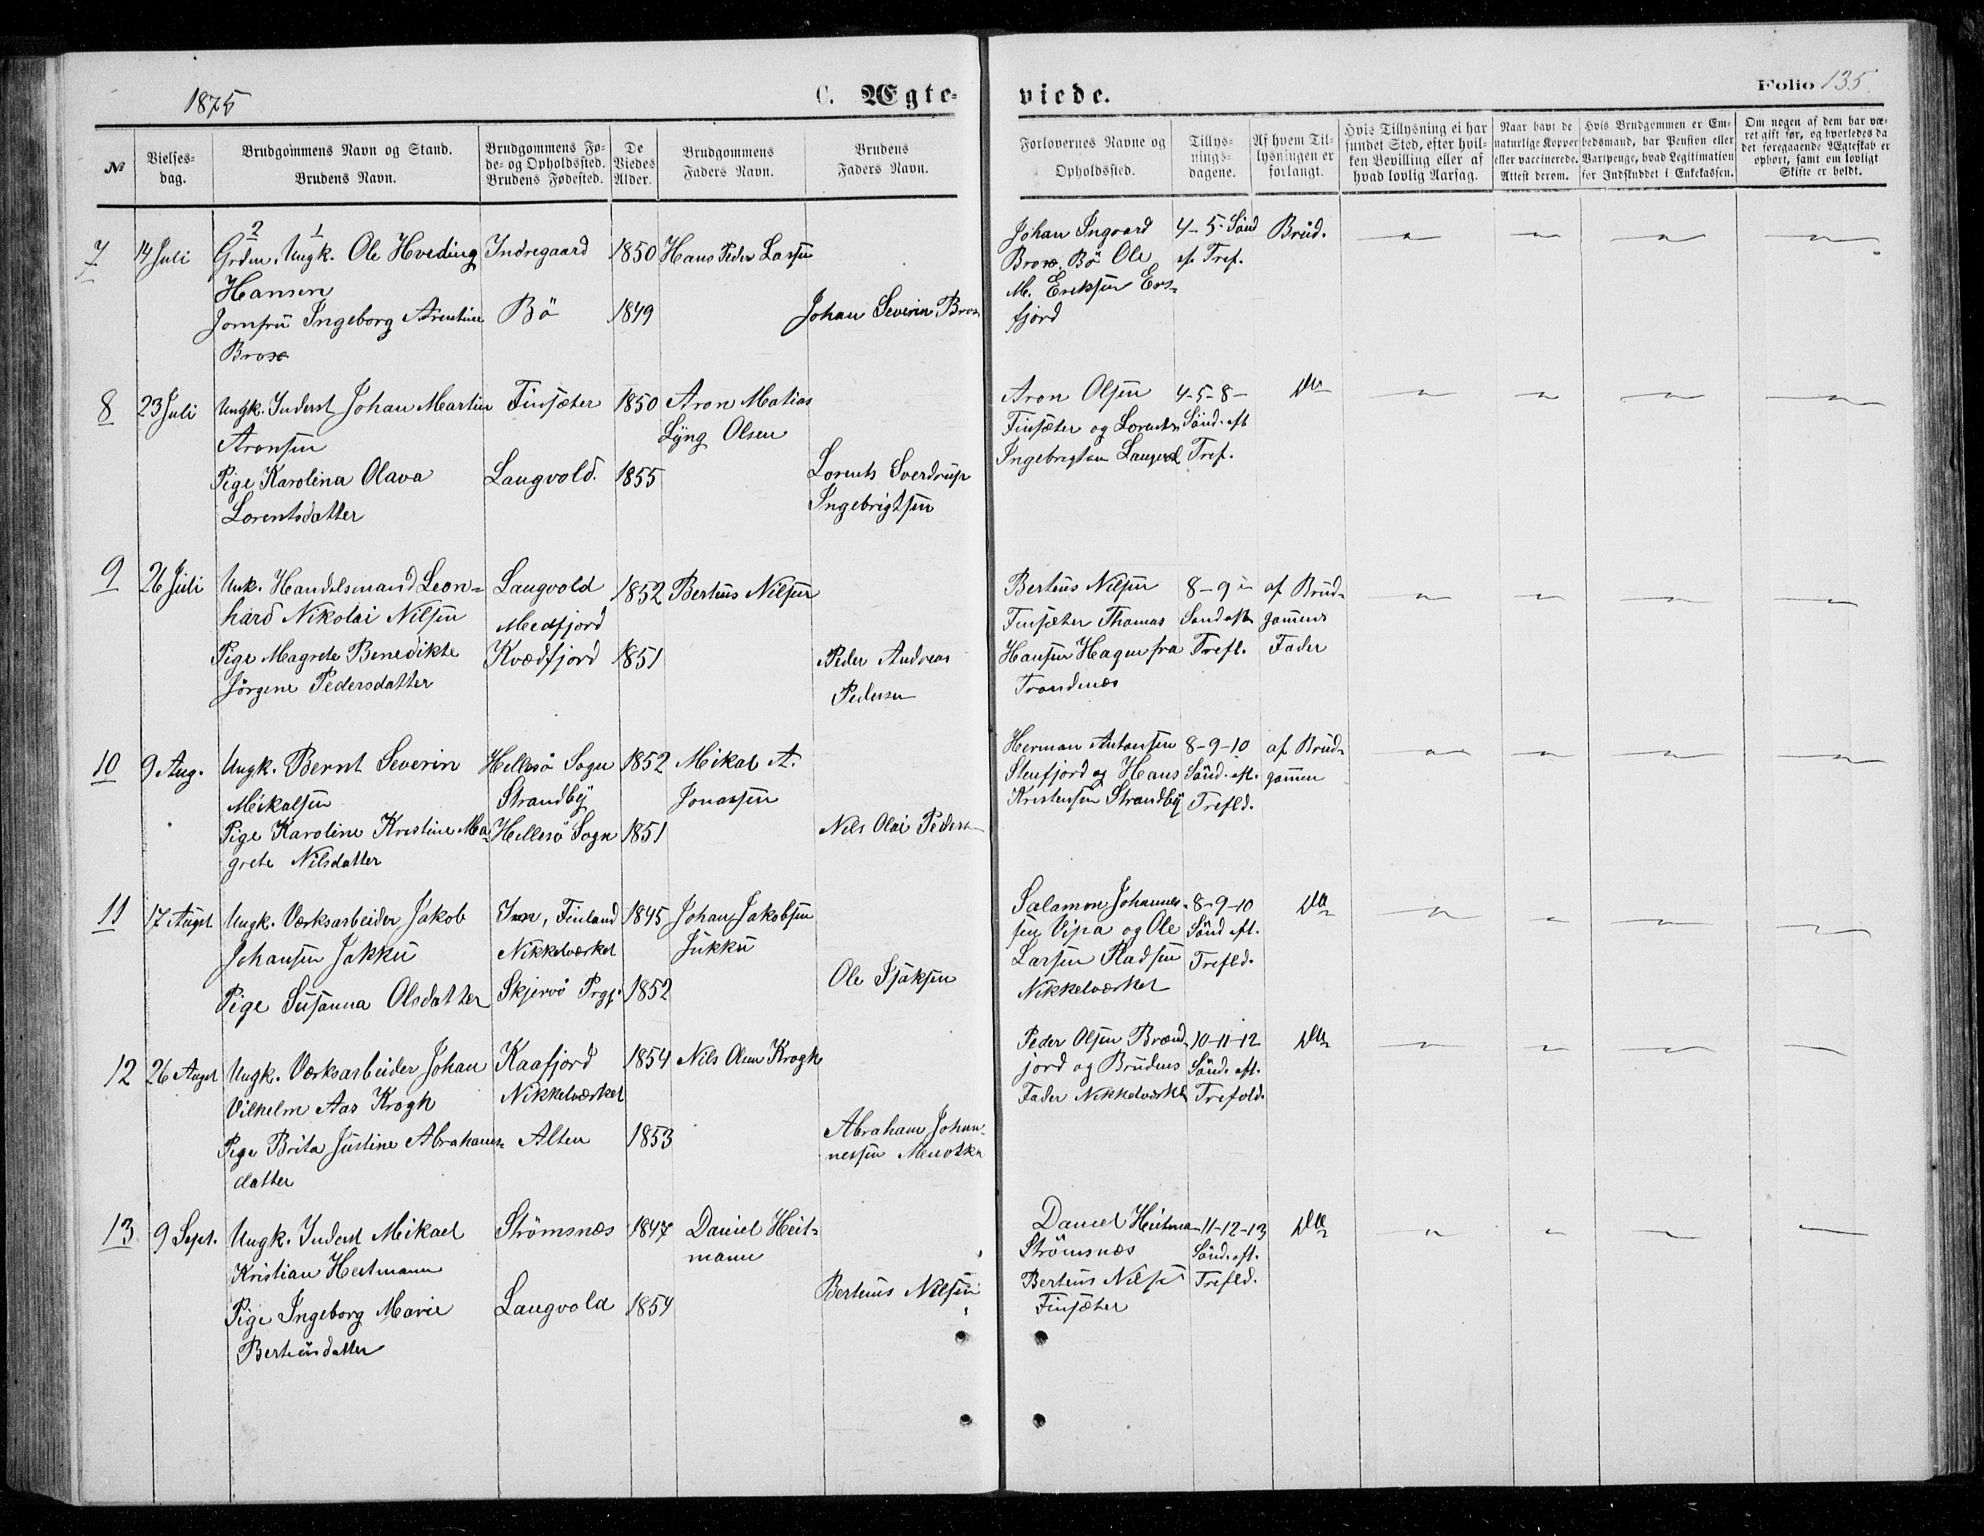 1875
C. Ægte-
viede.
Folio 135.
№
Vielses-
dag.
Brudgommens Navn og Stand.
Brudens Navn.
Brudgommens Fø-
de- og Opholdssted.
Brudens Fødested.
De
Viedes
Alder.
Brudgommens
Faders Navn.
Brudens
Faders Navn.
Forlovernes Navne og
Opholdssted.
Tillys-
nings-
dagene.
Af hvem Til-
lysningen er
forlangt.
Hvis Tillysning ei har
fundet Sted, efter hvil-
ken Bevilling eller af
hvad lovlig Aarsag.
Naar havt de
naturlige Kopper
eller vaccinerede.
Attest derom.
Hvis Brudgommen er Em-
bedsmand, har Pension eller
Vartpenge, hvad Legitimation
for Indskuddet i Enkekassen.
Om nogen af dem har væ-
ret gift før, og hvorledes da
det foregaaende Ægteskab er
ophørt, samt om lovligt
Skifte er holdt.
7 14 Juli
2 1
Grdm. Ungk. Ole Hveding
Hansen
Jomfru Ingeborg Arentine
Brose
Indregaard
Bö
1850
1849
Hans Peder Larsen
Johan Severin Brose
Johan Ingvard
Brose, Bö Ole
M. Eriksen Ers-
fjord
4-5 Sönd
ef. Tref.
Brud.
8 23 Juli
Ungk. Inderst Johan Martin
Aronsen
Pige Karolina Olava
Lorentsdatter
Finsæter
Laugvold.
1850
1855
Aron Matias
Lyng Olsen
Lorents Sverdrup
Ingebrigtsen
Aron Olsen
Finsæter og Lorents
Ingebrigtsen Laugvol
4-5-8-
Sönd. eft
Tref.
Do
9 26 Juli
Unk. Handelsmand Leon-
hard Nikolai Nilsen
Pige Magrete Benedikte
Jörgine Pedersdatter
Laugvold
Medfjord
Kvædfjord
1852
1851
Berteus Nilsen
Peder Andreas
Pedersen
Berteus Nilsen
Finsæter Thomas
Hansen Hagen fra
Trondenæs
8-9 i
Sönd eft
Trefl.
af Brud-
gommens
Fader
10 9 Aug.
Ungk. Bernt Severin
Mikalsen
Pige Karoline Kristine Ma-
grete Nilsdatter
Hellesö Sogn
Strandby
Hellesö Sogn
1852
1851
Mikal A.
Jonassen
Nils Olai Peders
Herman Antonsen
Stenfjord og Hans
Kristensen Strandby
8-9-10
Sönd. eft.
Trefld.
af Brud-
gommen
11 17 August
Ungk. Værksarbeider Jakob
Johansen Jakku
Pige Susanna Olsdatter
Finland
Nikkelværket
Skjervö Prgj.
1845
1852
Johan Jakobsen
Jukku
Ole Isaksen
Salamon Johannes-
sen Vipa og Ole
Larsen Radsen
Nikkelværket
8-9-10
Sönd eft.
Trefld.
Do
12 26 August
Ungk. Værksarbeider Johan
Vilhelm Aas Krogh
Pige Brita Justine Abrahams-
datter
Kaafjord
Nikkelværket
Alten
1854
1853
Nils Olsen Krogh
Abraham Johan-
nessen
Peder Olsen Brænd-
jord og Brudens
Fader Nikkelværket
10-11-12
Sönd. eft.
Trefold.
Do
13 9 Sept.
Ungk. Inderst Mikael
Kristian Heitmann
Pige Ingeborg Marie
Berteusdatter
Strömsnæs
Laugvold
1847
1854
Daniel Heit-
mann
Berteus Nilsen
Daniel Heitman
Strömsnæs
Berteus Nilsen
Finsæter
11-12-13
Sönd. eft.
Trefld.
Do